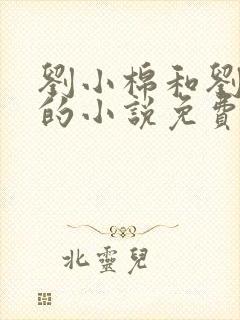 劉小棉和劉
的小說免費
北靈兒